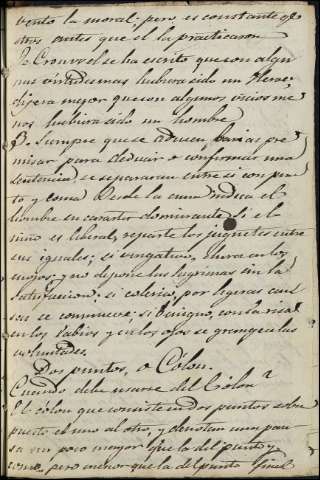 vento la moral; pero es constante q.e
otros antes que el la practicaron
De Cronvvel se ha escrito que son algu
nas virtudes mas hubiera sido un Heroe
dijera mejor que son algunos vicios me
nos hubiera sido un hombre
3. Siempre que se aducen barias pre
misas para deducir o confirmar una
sentencia, se separaran entre si con pun
to y coma Desde la cuna indica el
hombre su caracter dominante Si el
niño es liberal, reparte los juguetes entre
sus iguales; si vengativo, llora en los
suyos; y no depone las lagrimas sin la
satisfaccion; si colerico por ligeras cau
sas se commueve; si benigno, con la risa
en los labios y en los ojos se grangea las
voluntades.
Dos puntos, o Cólon.
Cuando debe usarse del Cólon?
El cólon que consiste en dos puntos sobre
puesto el uno al otro, y denotan una pau
sa un poco mayor que la del punto y
coma, pero menor que la del punto final